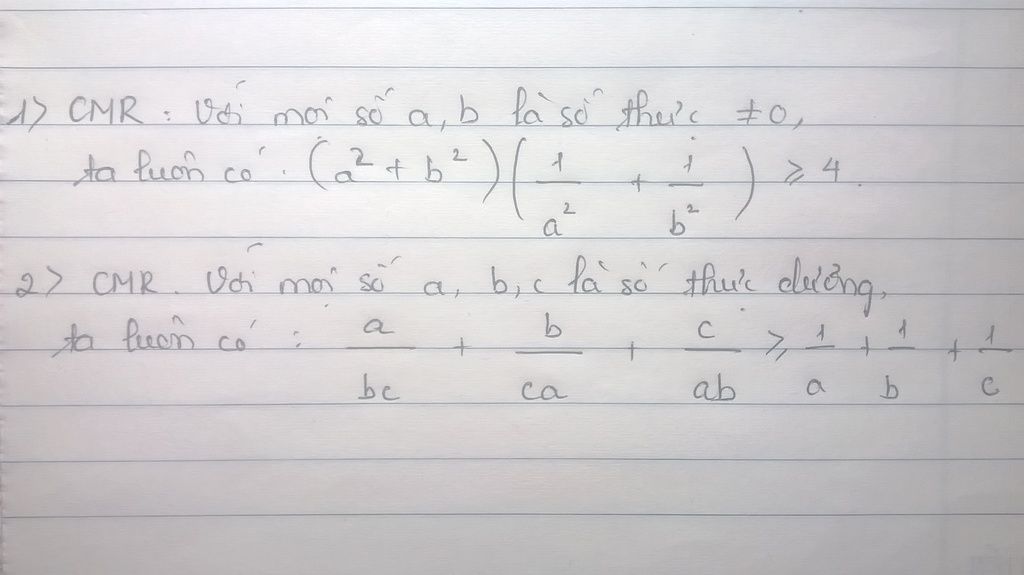 1) CMR : Với mọi số a, b là số thực ≠ 0,
ta luôn có : (a² + b²)(1/a² + 1/b²) ≥ 4.
2) CMR. Với mọi số a, b, c là số thực dương,
ta luôn có : a/bc + b/ca + c/ab ≥ 1/a + 1/b + 1/c